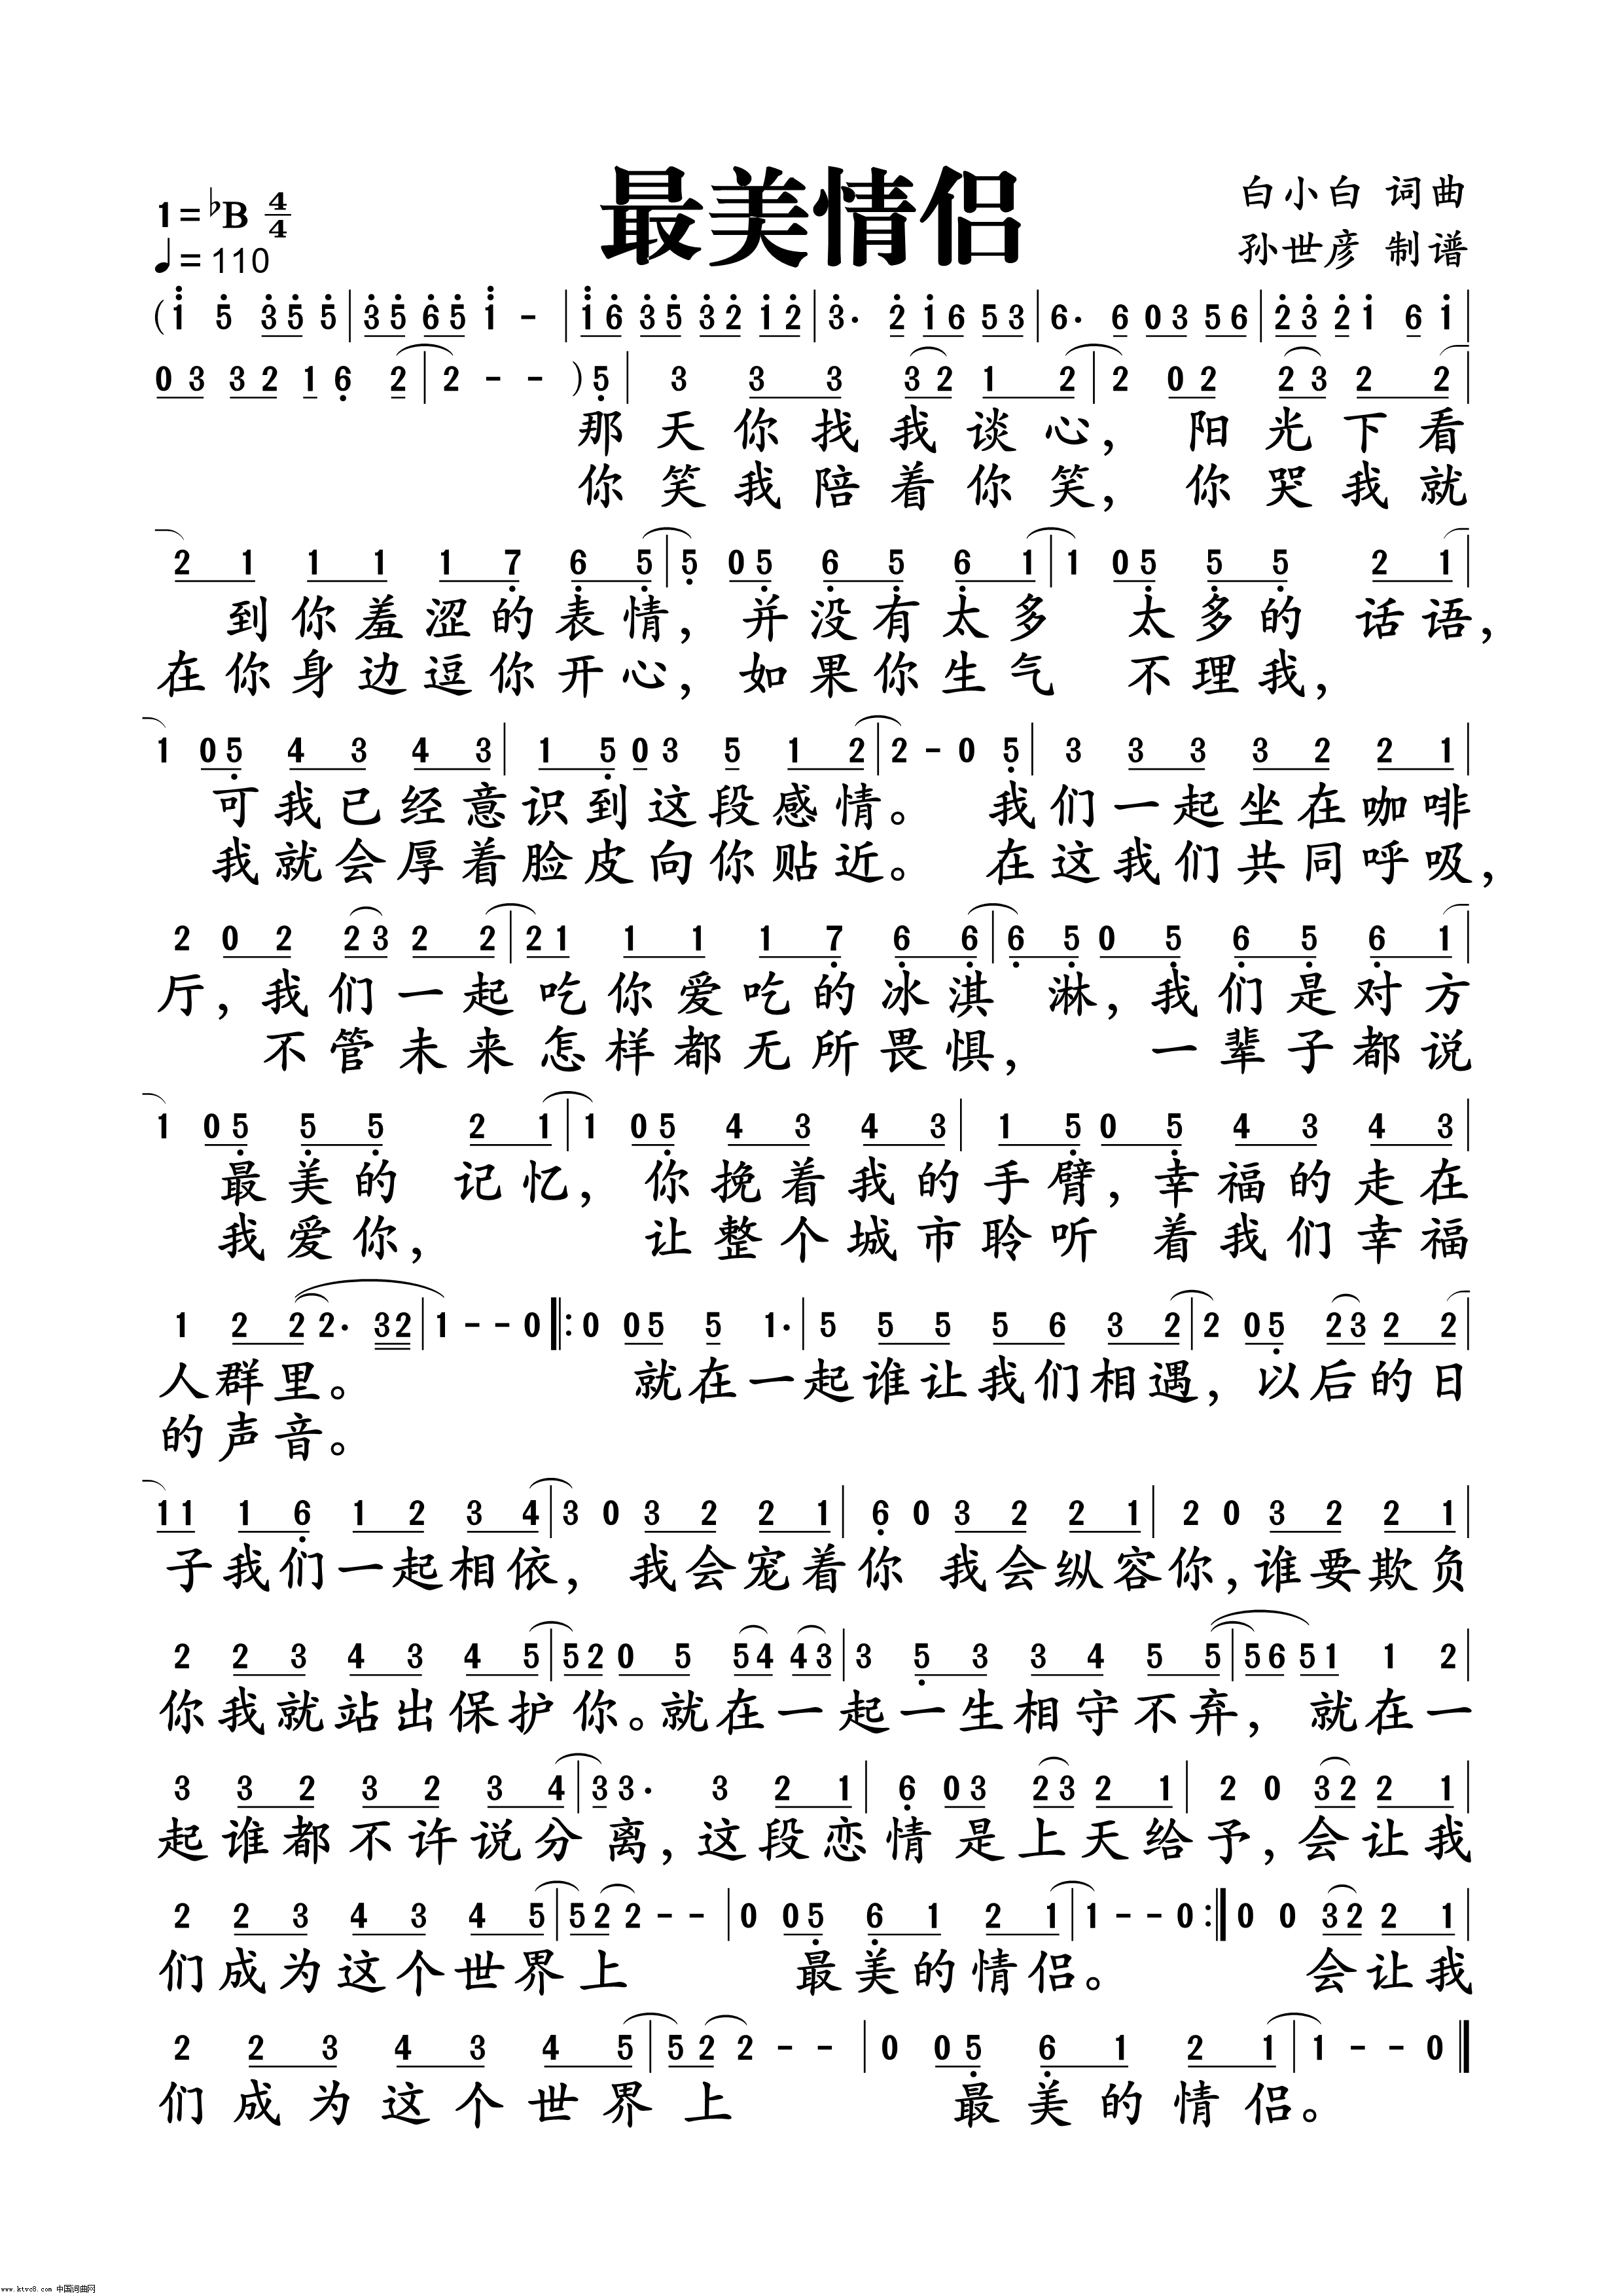 最美情侣
1=♭B 4/4
♩=110
白小白 词曲
孙世彦 制谱
(i 5 3 5 5 | 3 5 6 5 i - | i 6 3 5 3 2 1 2 | 3· 2 1 6 5 3 | 6· 6 0 3 5 6 | 2 3 2 1 6 i |
0 3 3 2 1 6 2 | 2 - - ) 5 | 3 3 3 3 2 1 2 | 2 0 2 2 3 2 2 |
那天你找我谈心，阳光下看
你笑我陪着你笑，你哭我就
2 1 1 1 1 7 6 5 | 5 0 5 6 5 6 1 | 1 0 5 5 5 2 1 |
到你羞涩的表情，并没有太多 太多的 话语，
在你身边逗你开心，如果你生气 不理我，
1 0 5 4 3 4 3 | 1 5 0 3 5 1 2 | 2 - 0 5 | 3 3 3 3 2 2 1 |
可我已经意识到这段感情。 我们一起坐在咖啡
我就会厚着脸皮向你贴近。 在这我们共同呼吸，
2 0 2 2 3 2 2 | 2 1 1 1 1 7 6 6 | 6 5 0 5 6 5 6 1 |
厅，我们一起吃你爱吃的冰淇 淋，我们是对方
不管未来怎样都无所畏惧， 一辈子都说
1 0 5 5 5 2 1 | 1 0 5 4 3 4 3 | 1 5 0 5 4 3 4 3 |
最美的 记忆，你挽着我的手臂，幸福的走在
我爱你， 让整个城市聆听 着我们幸福
1 2 2 2· 3 2 | 1 - - 0 ‖: 0 0 5 5 1· | 5 5 5 5 6 3 2 | 2 0 5 2 3 2 2 |
人群里。 就在一起谁让我们相遇，以后的日
的声音。
1 1 1 6 1 2 3 4 | 3 0 3 2 2 1 | 6 0 3 2 2 1 | 2 0 3 2 2 1 |
子我们一起相依， 我会宠着你 我会纵容你，谁要欺负
2 2 3 4 3 4 5 | 5 2 0 5 5 4 4 3 | 3 5 3 3 4 5 5 | 5 6 5 1 1 2 |
你我就站出保护你。就在一起一生相守不弃， 就在一
3 3 2 3 2 3 4 | 3 3· 3 2 1 | 6 0 3 2 3 2 1 | 2 0 3 2 2 1 |
起谁都不许说分离，这段恋情是上天给予，会让我
2 2 3 4 3 4 5 | 5 2 2 - - | 0 0 5 6 1 2 1 | 1 - - 0 :‖ 0 0 3 2 2 1 |
们成为这个世界上 最美的情侣。 会让我
2 2 3 4 3 4 5 | 5 2 2 - - | 0 0 5 6 1 2 1 | 1 - - 0 ‖
们成为这个世界上 最美的情侣。
www.ktvc8.com 中国词曲网